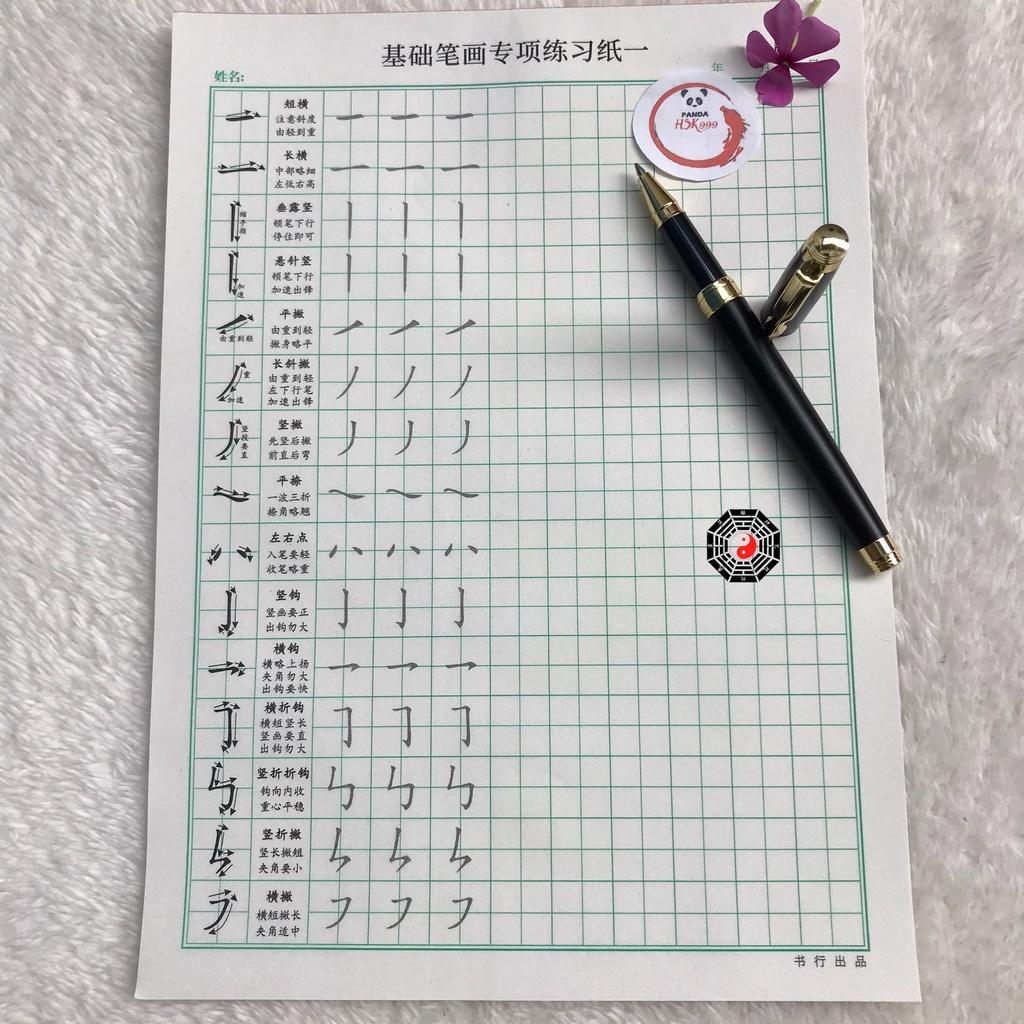 基础笔画专项练习纸一
姓名:
年
PANDA
HSK999
短横
注意斜度
由轻到重
长横
中部略细
左低右高
缩手指
垂露竖
顿笔下行
停住即可
加速
悬针竖
顿笔下行
加速出锋
由重到轻
平撇
由重到轻
撇身略平
重
加速
长斜撇
由重到轻
左下行笔
加速出锋
竖段要直
竖撇
先竖后撇
前直后弯
平捺
一波三折
捺角略翘
左右点
入笔要轻
收笔略重
竖钩
竖画要正
出钩勿大
横钩
横略上扬
夹角勿大
出钩要快
横折钩
横短竖长
竖画要直
出钩勿大
竖折折钩
钩向内收
重心平稳
竖折撇
竖长撇短
夹角要小
横撇
横短撇长
夹角适中
书行出品